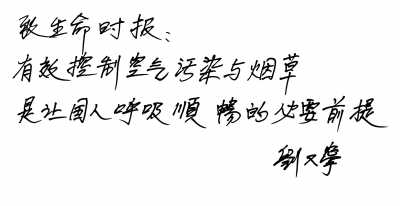 致生命时报：
有效控制空气污染与烟草
是让国人呼吸順暢的必要前提
劉又寧